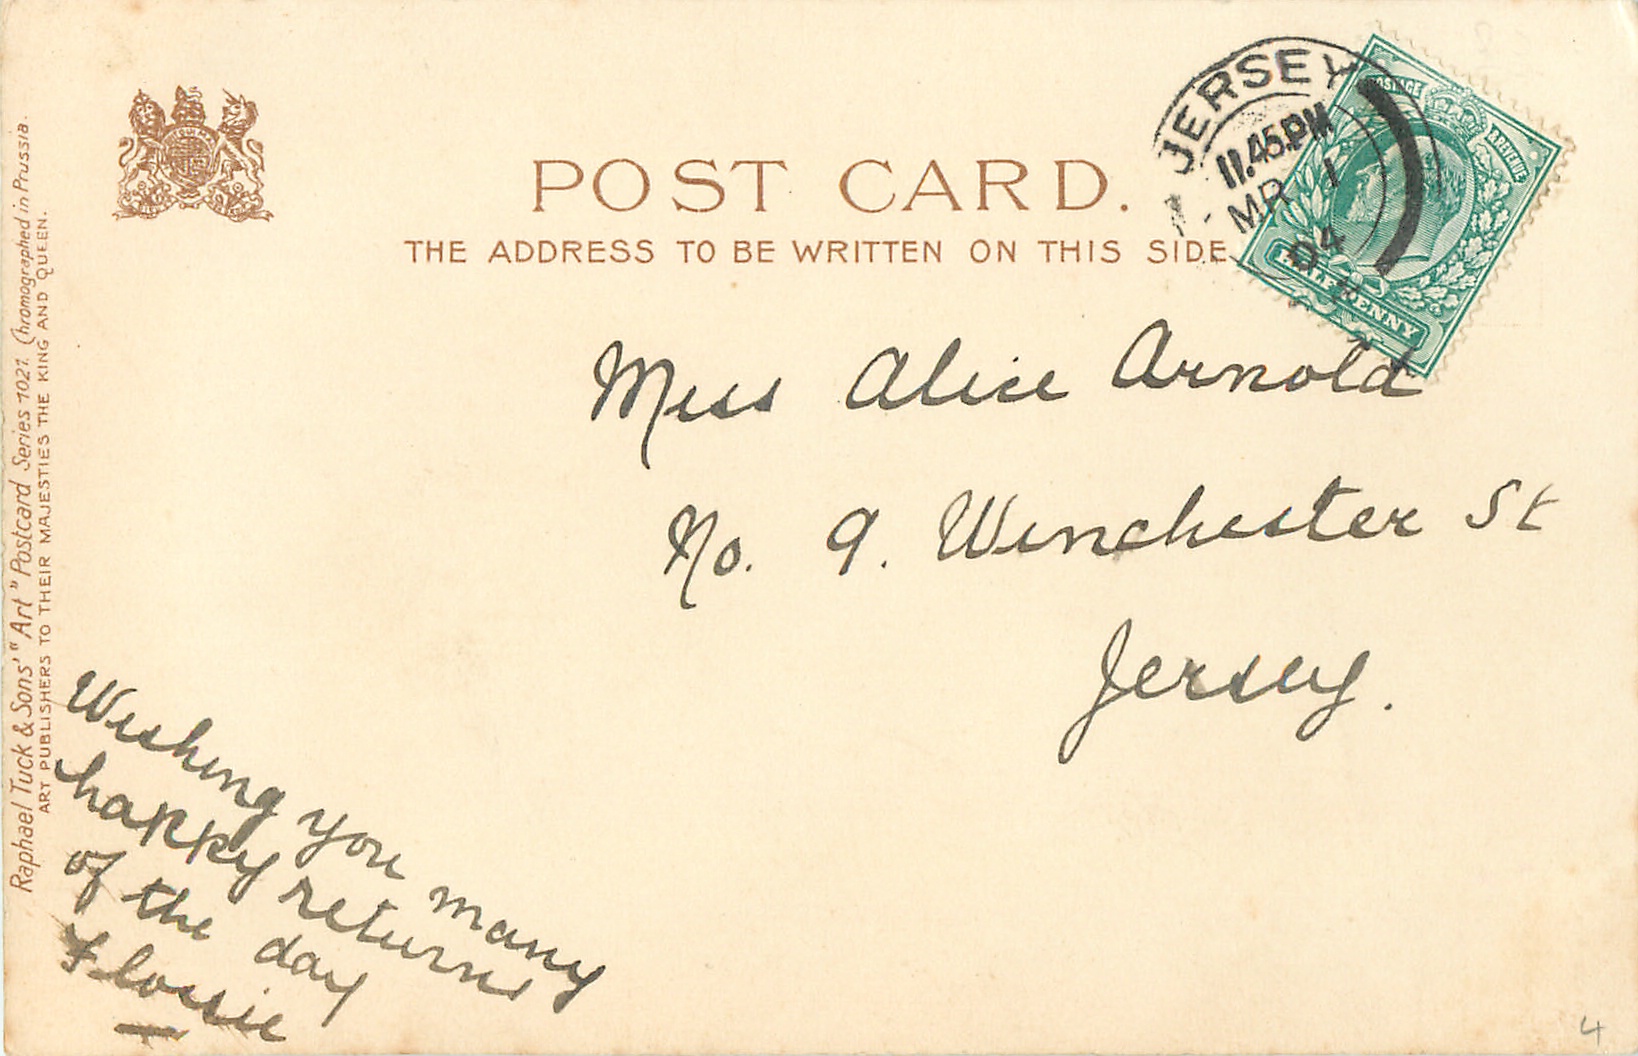 POST CARD.
THE ADDRESS TO BE WRITTEN ON THIS SIDE
JERSEY
11.45 PM
MR 1
04
POSTAGE
& REVENUE
HALFPENNY
Miss Alice Arnold
No. 9. Winchester St
Jersey.
Wishing you many
happy returns
of the day
Flossie
Raphael Tuck & Sons' "Art" Postcard Series 1021. Chromographed in Prussia.
ART PUBLISHERS TO THEIR MAJESTIES THE KING AND QUEEN.
4